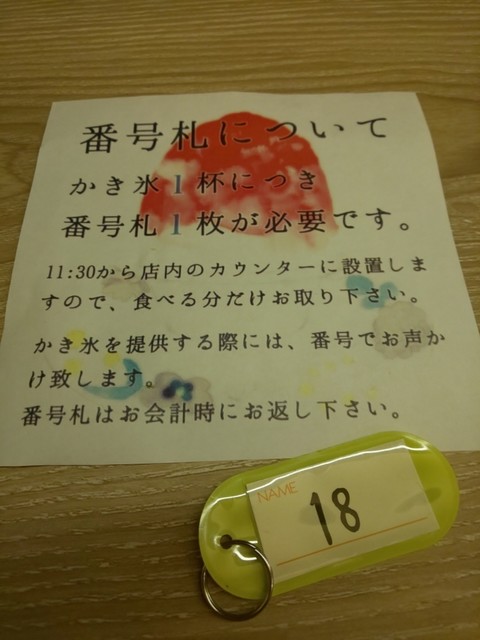 番号札について
かき氷1杯につき
番号札1枚が必要です。
11:30から店内のカウンターに設置しま
すので、食べる分だけお取り下さい。
かき氷を提供する際には、番号でお声か
け致します。
番号札はお会計時にお返し下さい。
NAME
18